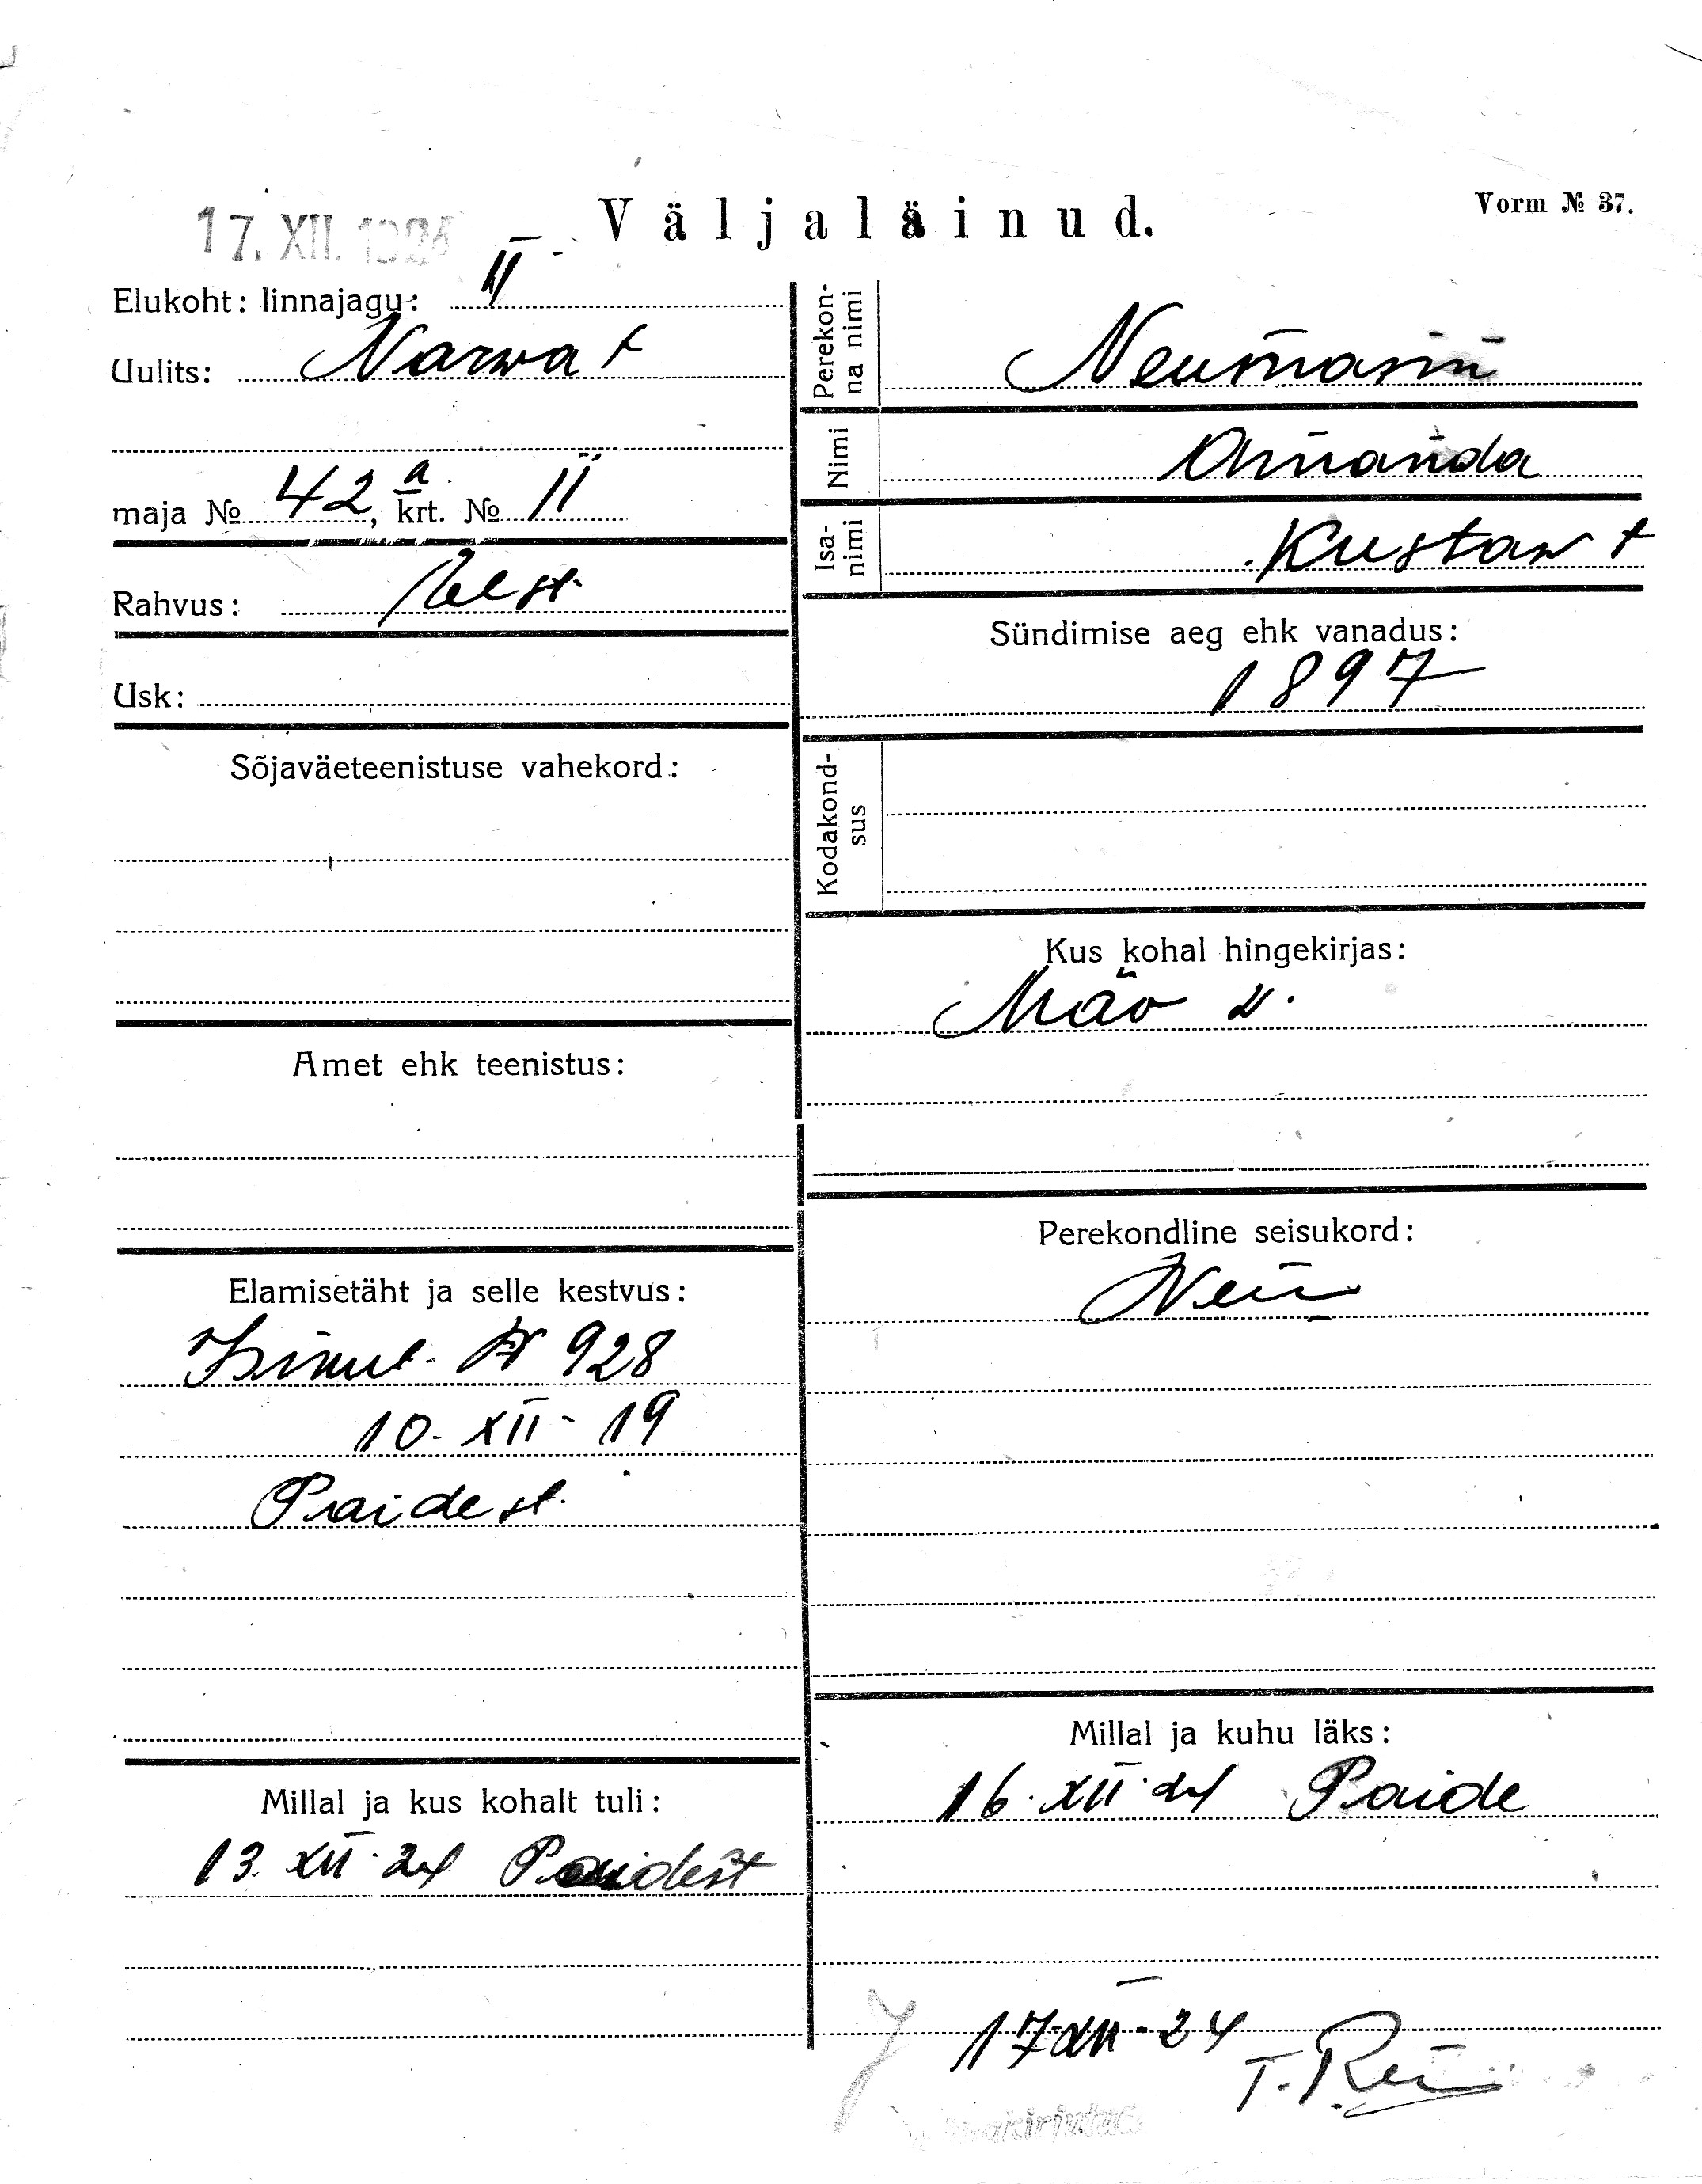 17. XII. 192
Väljaläinud.
Vorm № 37.
Elukoht: linnajagu: II
Uulits: Narwa t
maja № 42 a, krt. № II
Rahvus: Eest
Usk:
Sõjaväeteenistuse vahekord:
Amet ehk teenistus:
Elamisetäht ja selle kestvus:
№ 928
10. XII - 19
Paidest.
Millal ja kus kohalt tuli:
13. XII. 24 Paidest
Perekonna nimi
Neumann
Nimi
Amanda
Isanimi
Kustav t
Sündimise aeg ehk vanadus:
1897
Kodakondsus
Kus kohal hingekirjas:
Mäo v.
Perekondline seisukord:
Neiu
Millal ja kuhu läks:
16. XII. 24 Paide
17 XII - 24